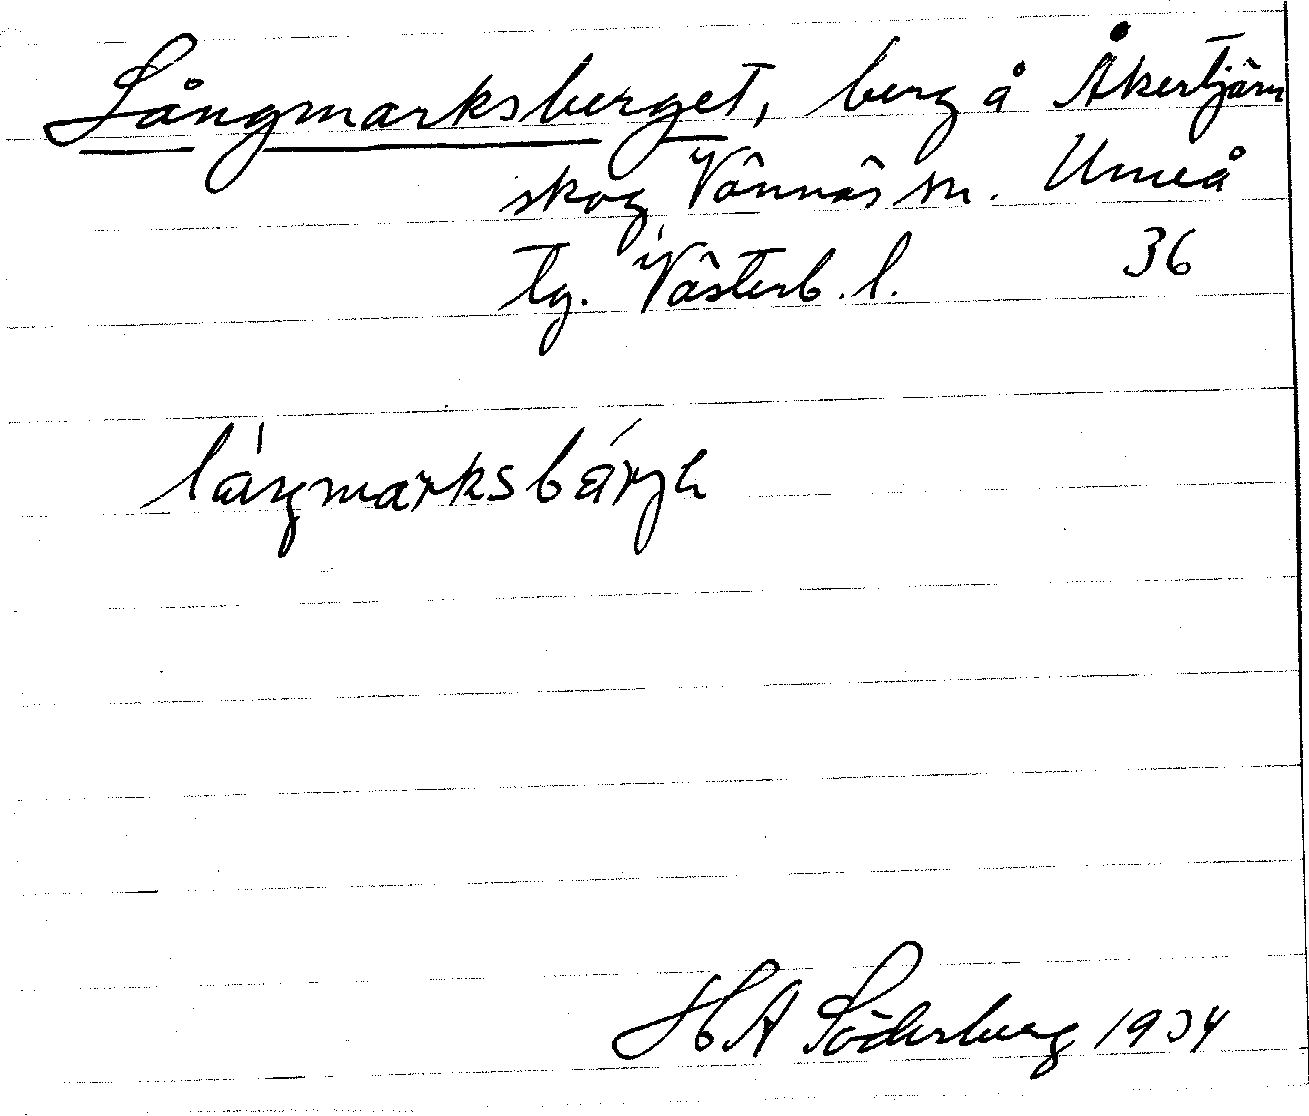 Långmarksberget, berg å Åkertjärn
skog Vännäs sn. Umeå
tg. Västerb. l. 36
långmarksbärjɛ
HA Söderberg 1934